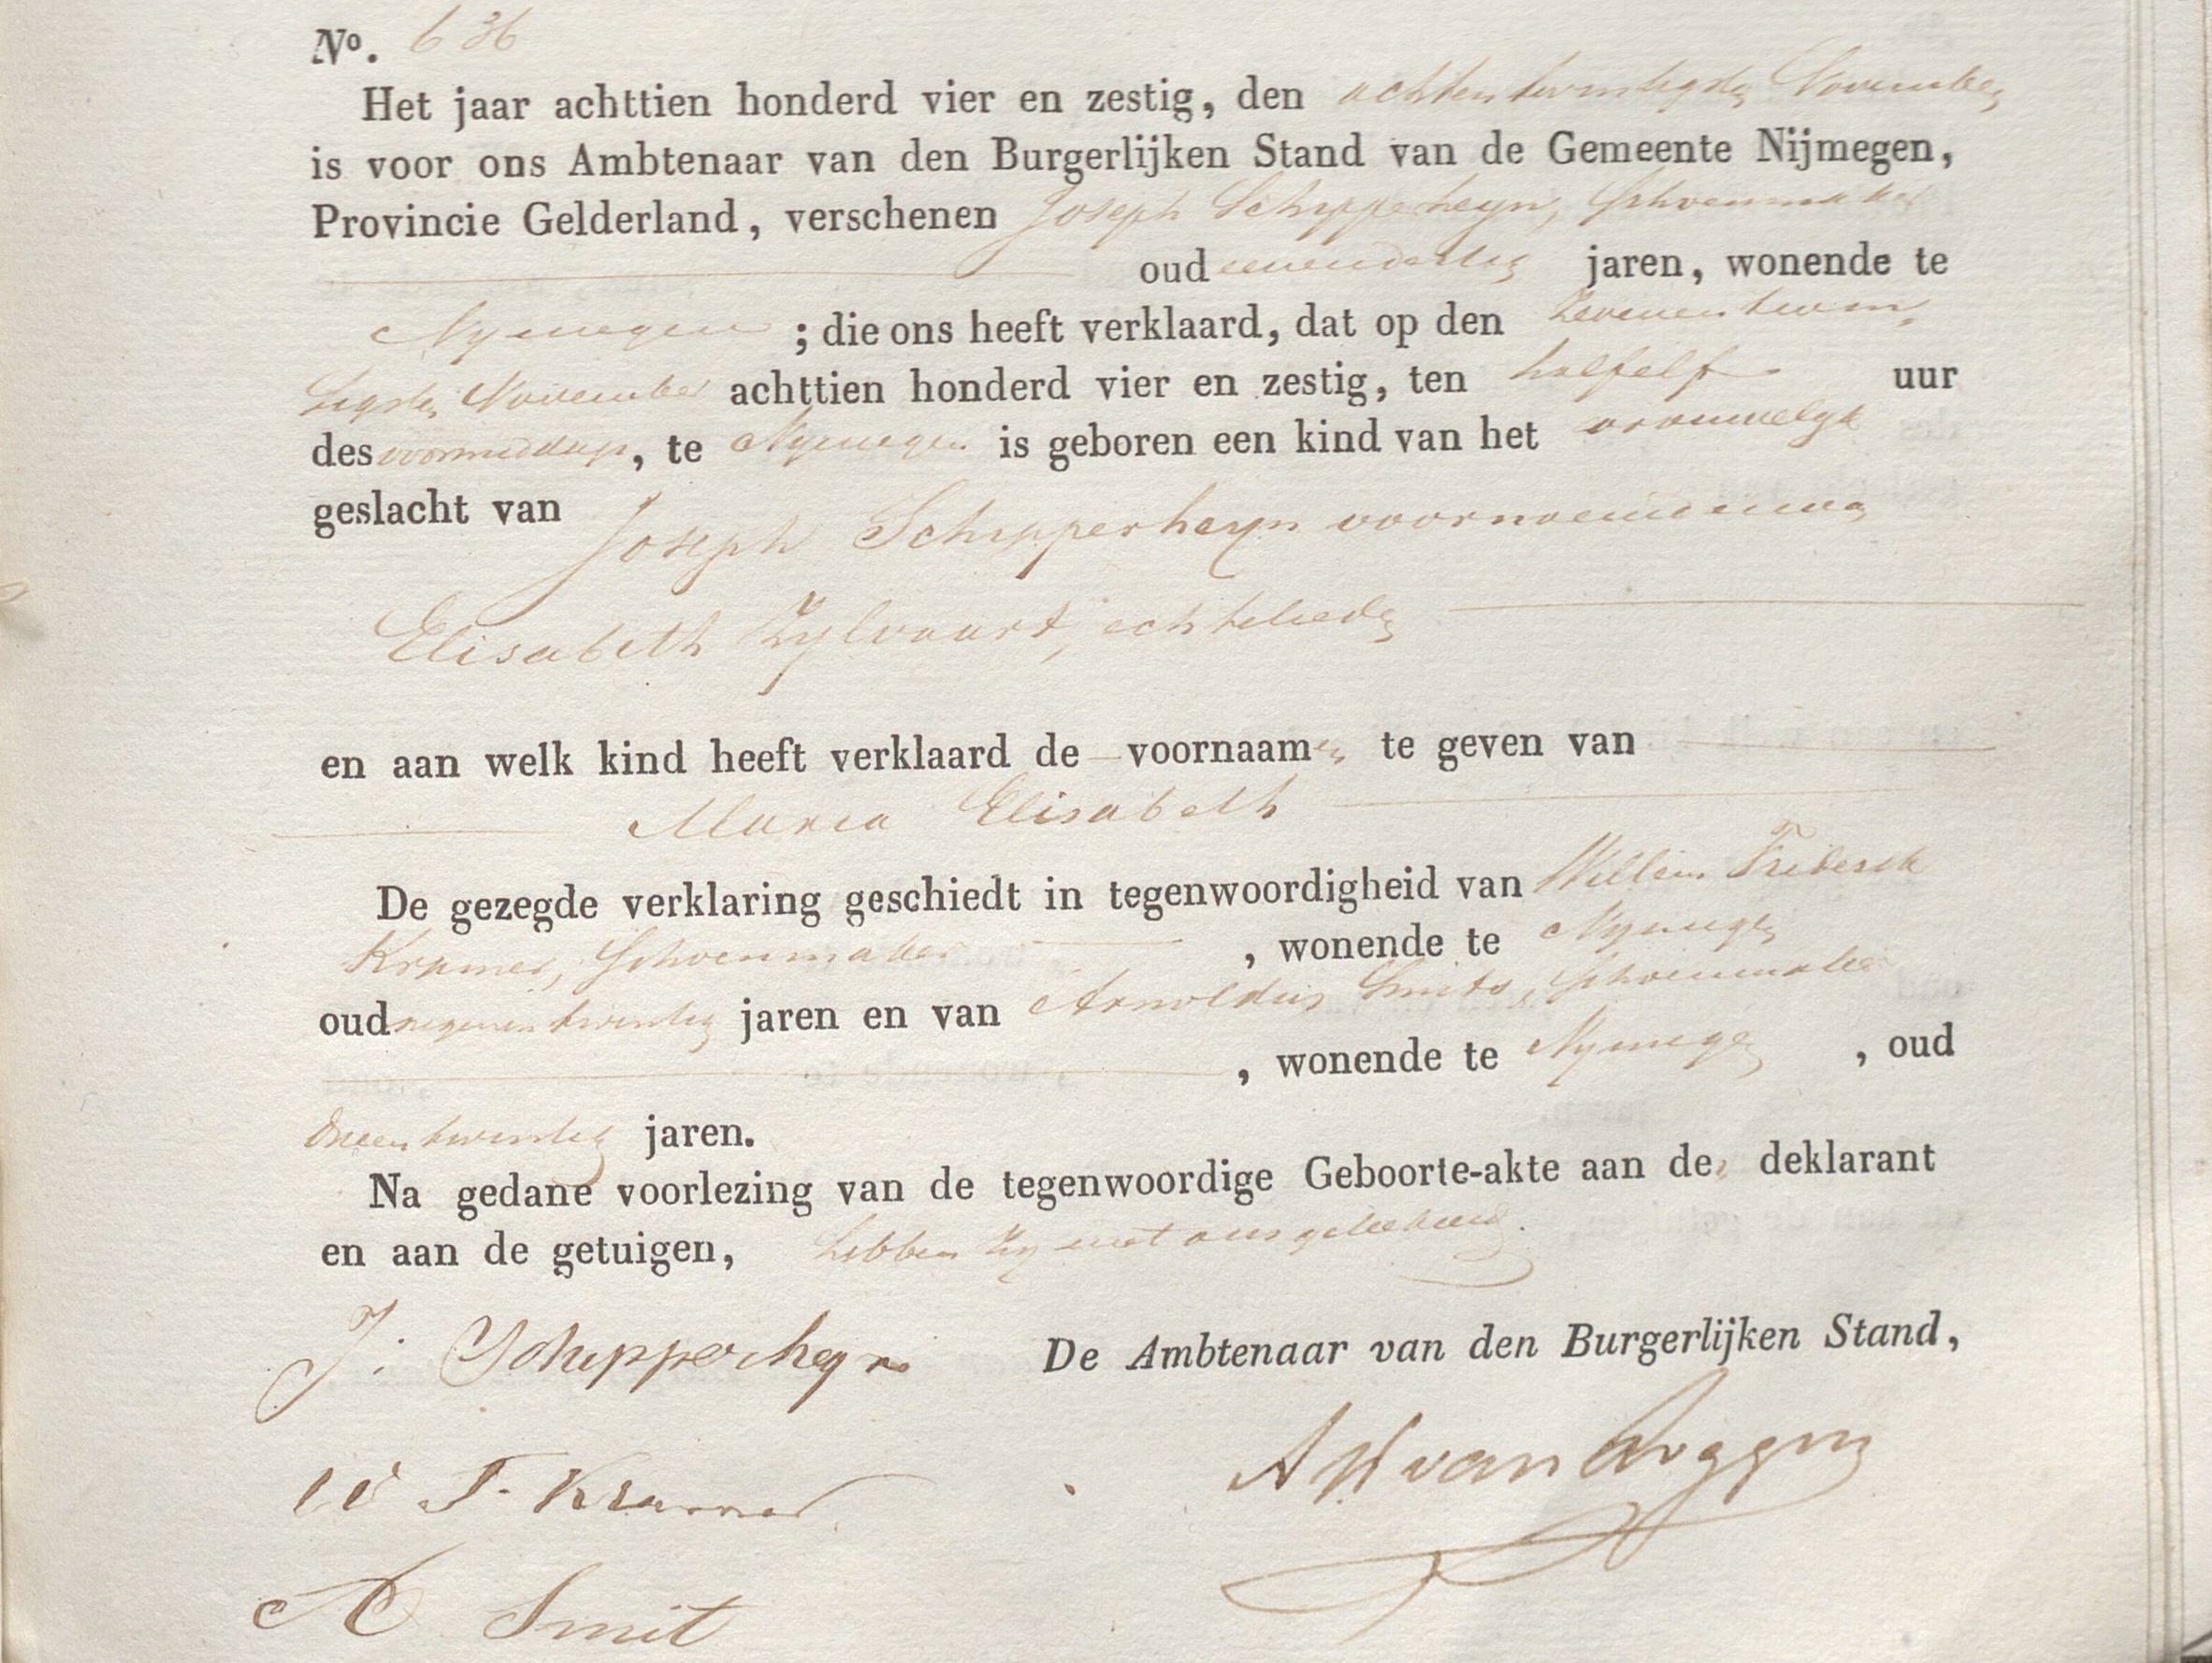 No. 636
Het jaar achttien honderd vier en zestig, den achtentwintigsten November
is voor ons Ambtenaar van den Burgerlijken Stand van de Gemeente Nijmegen,
Provincie Gelderland, verschenen Joseph Schipperheyn, Schoenmaker
oud eenendertig jaren, wonende te
Nymegen ; die ons heeft verklaard, dat op den zevenentwin
tigsten November achttien honderd vier en zestig, ten half elf uur
des voormiddags, te Nymegen is geboren een kind van het vrouwelyk
geslacht van Joseph Schipperheyn voornoemd en van
Elisabeth Zylvaart, echtelieden
en aan welk kind heeft verklaard de voornaamen te geven van
Maria Elisabeth
De gezegde verklaring geschiedt in tegenwoordigheid van Willem Frederik
Kramer, Schoenmaker , wonende te Nymegen
oud negenentwintig jaren en van Arnoldus Smits, Schoenmaker
, wonende te Nymegen , oud
drieentwintig jaren.
Na gedane voorlezing van de tegenwoordige Geboorte-akte aan den deklarant
en aan de getuigen, hebben zy met ons geteekend.
J: Schipperheyn De Ambtenaar van den Burgerlijken Stand,
W F. Kramer
A Smit